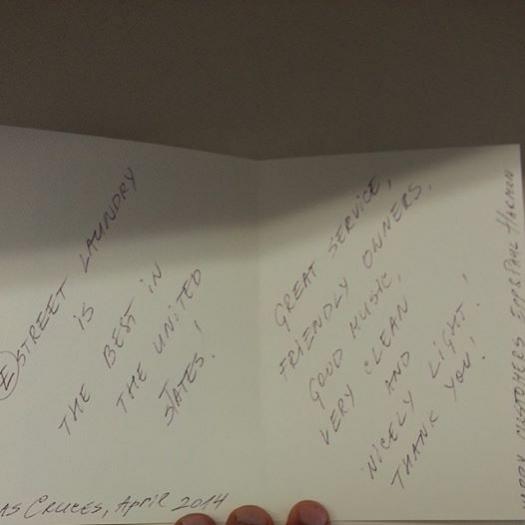 E STREET LAUNDRY
IS
THE BEST IN
THE UNITED
STATES!
AS CRUCES, APRIL 2014
GREAT SERVICE,
FRIENDLY OWNERS,
GOOD MUSIC,
VERY CLEAN
AND
NICELY LIGHT!
THANK YOU!
PPY CUSTOMERS PAUL HARMON